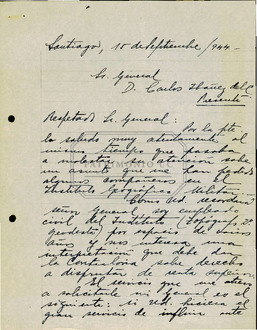 Santiago, 15 de Septiembre/944.-
Sr. General
D. Carlos Ibáñez del C.
Presente
Respetado Sr. General:
Por la pte
lo saludo muy atentamente, al
mismo tiempo que pasaba
a molestar su atención sobre
un asunto que me han pedido
algunos compañeros en el
Instituto Geográfico Militar.
Como Ud. recordará
señor General soy empleado
civil del Instituto
geodesta) por espacio de varios
años y nos interesa una
interpretación que debe dar
la Contraloría sobre derecho
a disfrutar de renta superior.
El servicio que me atrevo
a solicitarle mi General es el
siguiente: si Ud. hiciera el
gran servicio de influir ante